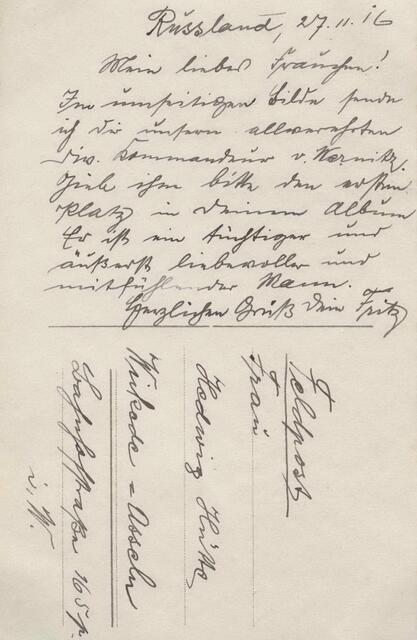 Russland, 27.11.16
Mein liebes Frauchen!
Im umseitigen Bilde sende
ich dir unsern allverehrten
Div. Kommandeur v. Wernitz.
Gieb ihm bitte den ersten
Platz in deinem Album
Er ist ein tüchtiger und
äußerst liebevoller und
mitfühlender Mann.
Herzlichen Gruß dein Fritz
Feldpost
Frau
Hedwig Hütte
Wickede=Asseln
Bahnhofstraße 165
i. W.